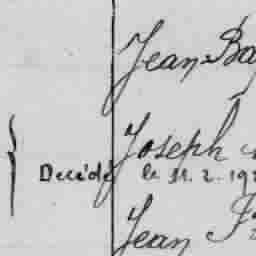 Jean Ba
Joseph
Décédé le 11. 2. 19
Jean